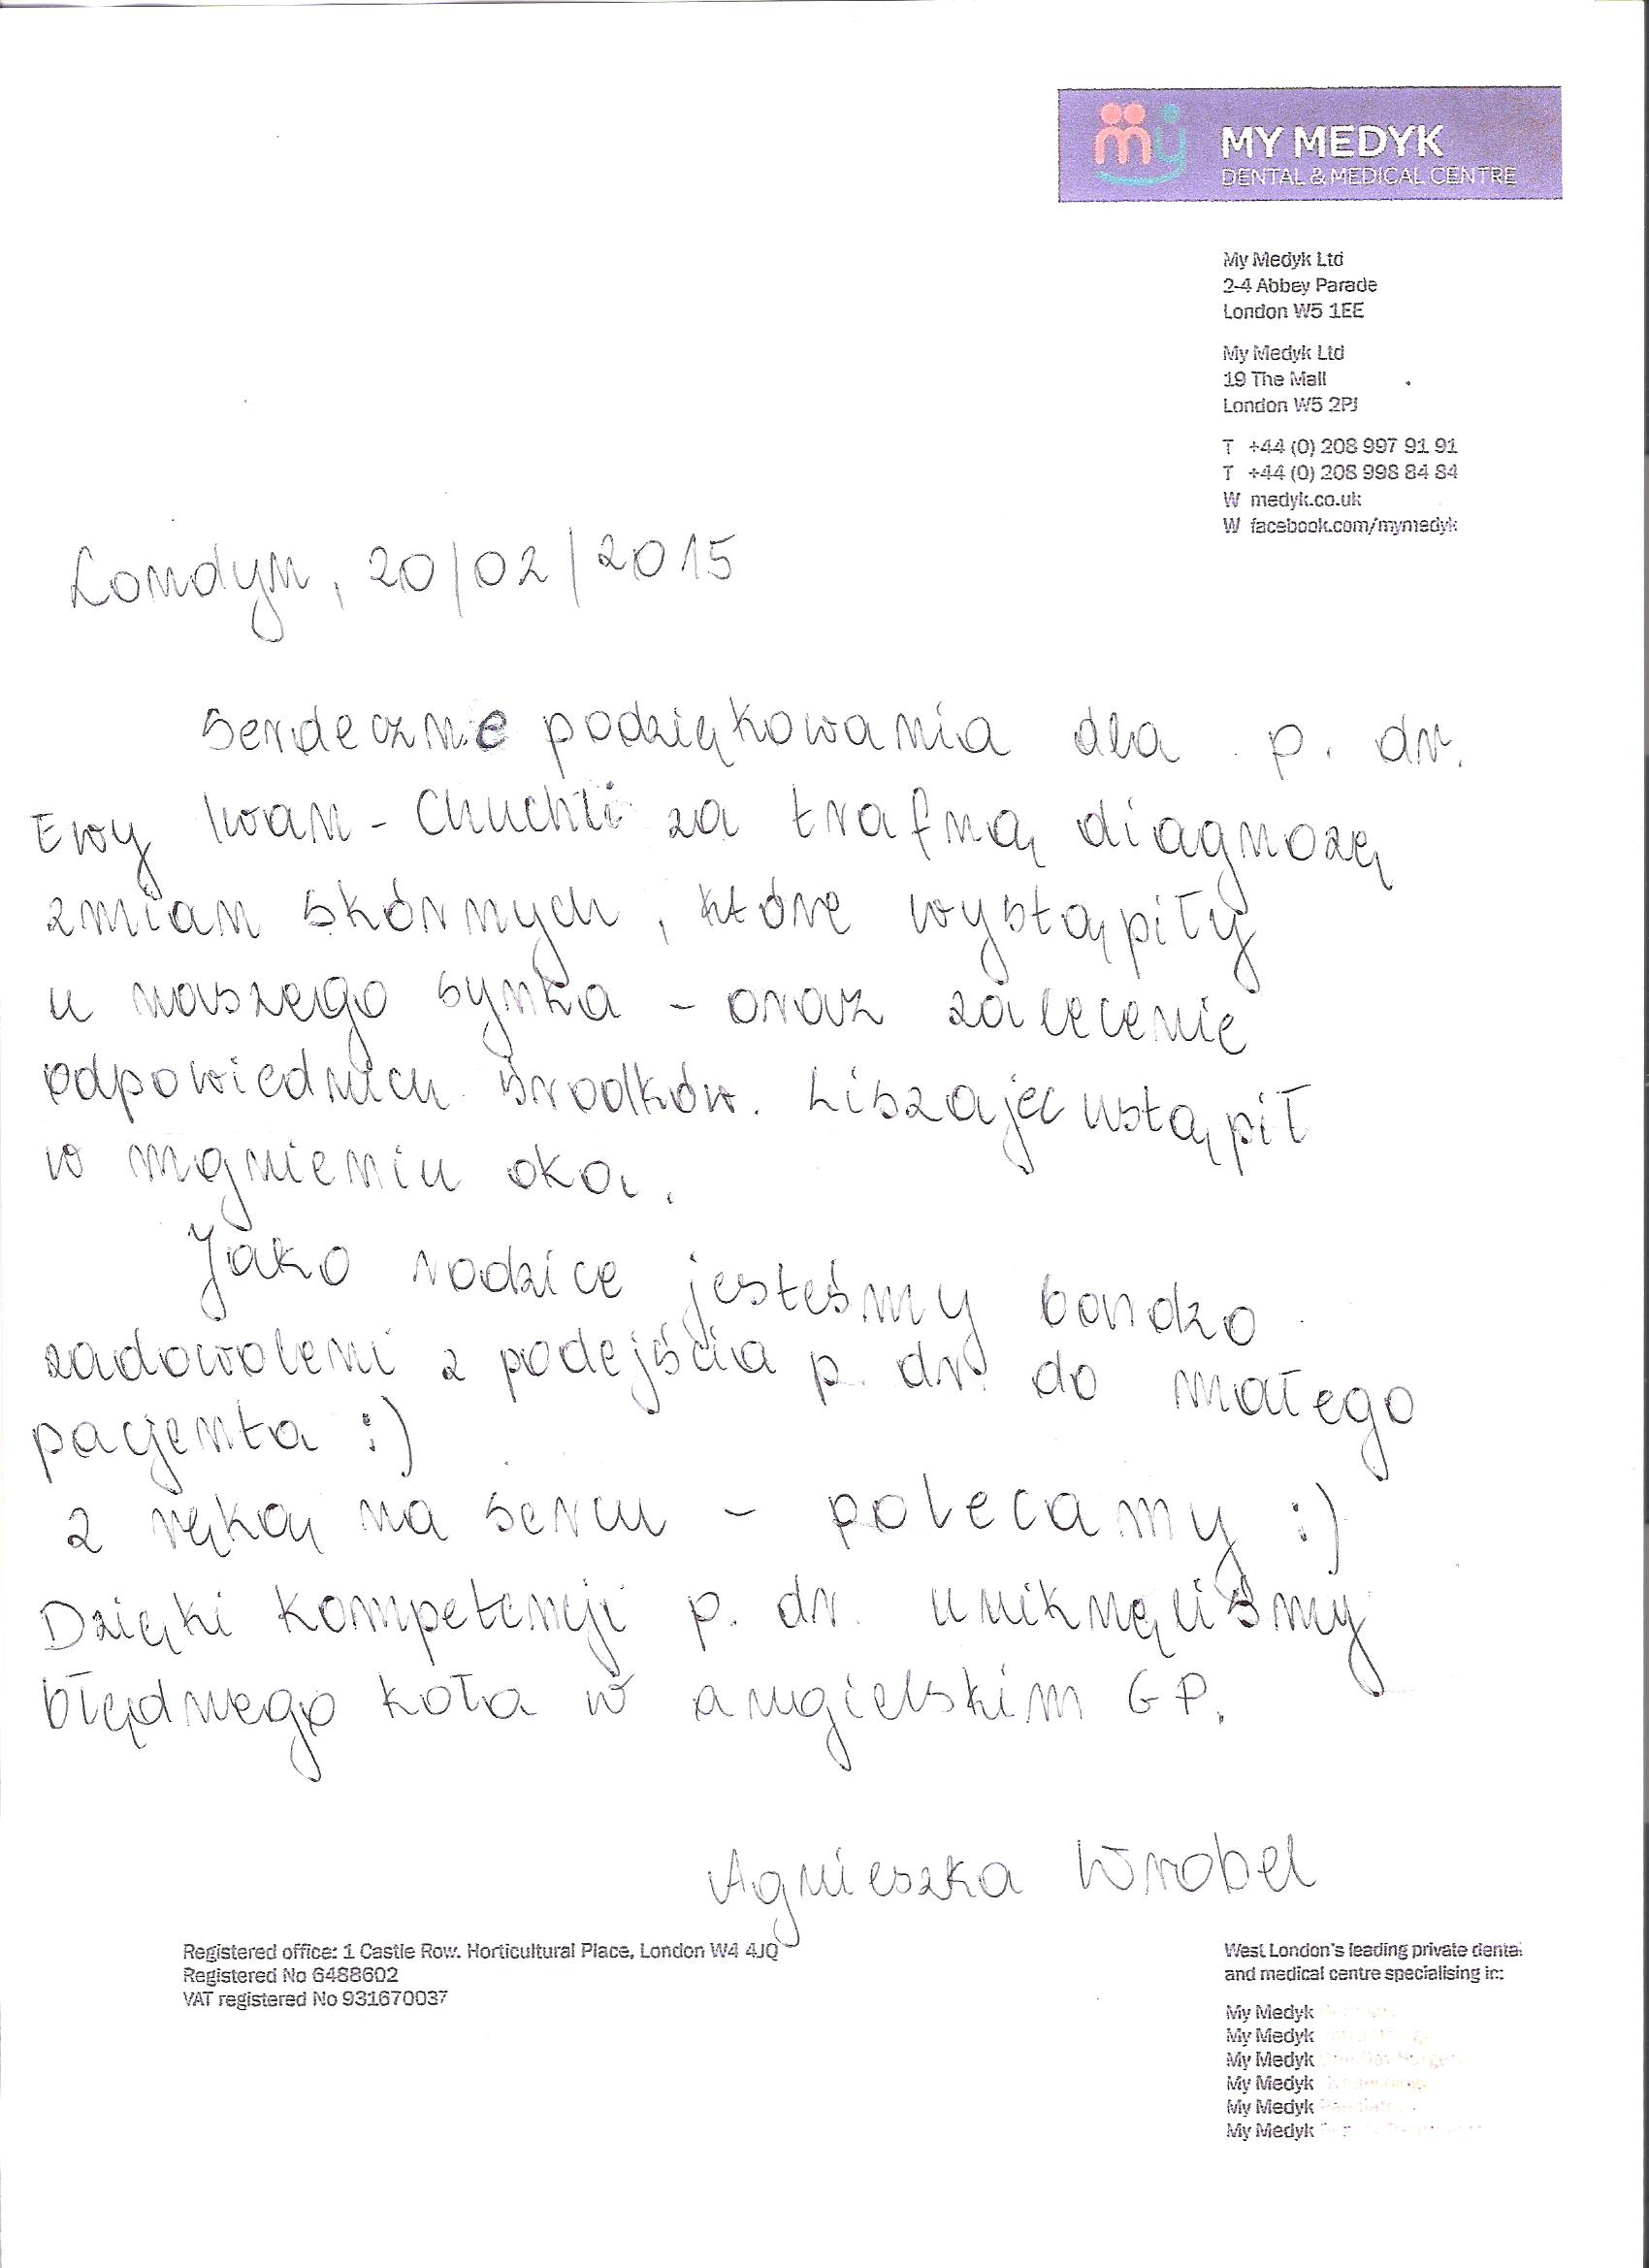 my MY MEDYK
DENTAL & MEDICAL CENTRE
My Medyk Ltd
2-4 Abbey Parade
London W5 1EE
My Medyk Ltd
19 The Mall
London W5 2PJ
T +44 (0) 208 997 91 91
T +44 (0) 208 998 84 84
W medyk.co.uk
W facebook.com/mymedyk
Londyn, 20/02/2015
Serdecznie podziękowania dla p. dr.
Ewy Iwan - Chuchli za trafną diagnozę
zmian skórnych, które wystąpiły
u naszego synka - oraz zalecenie
odpowiednich środków. Liszajec ustąpił
w mgnieniu oka.
Jako rodzice jesteśmy bardzo
zadowoleni z podejścia p. dr. do małego
pacjenta :)
z ręką na sercu - polecamy :)
Dzięki kompetencji p. dr. uniknęliśmy
błędnego koła w angielskim GP.
Agnieszka Wrobel
Registered office: 1 Castle Row. Horticultural Place, London W4 4JQ
Registered No 6488602
VAT registered No 931670037
West London's leading private dental
and medical centre specialising in:
My Medyk
My Medyk
My Medyk
My Medyk
My Medyk
My Medyk